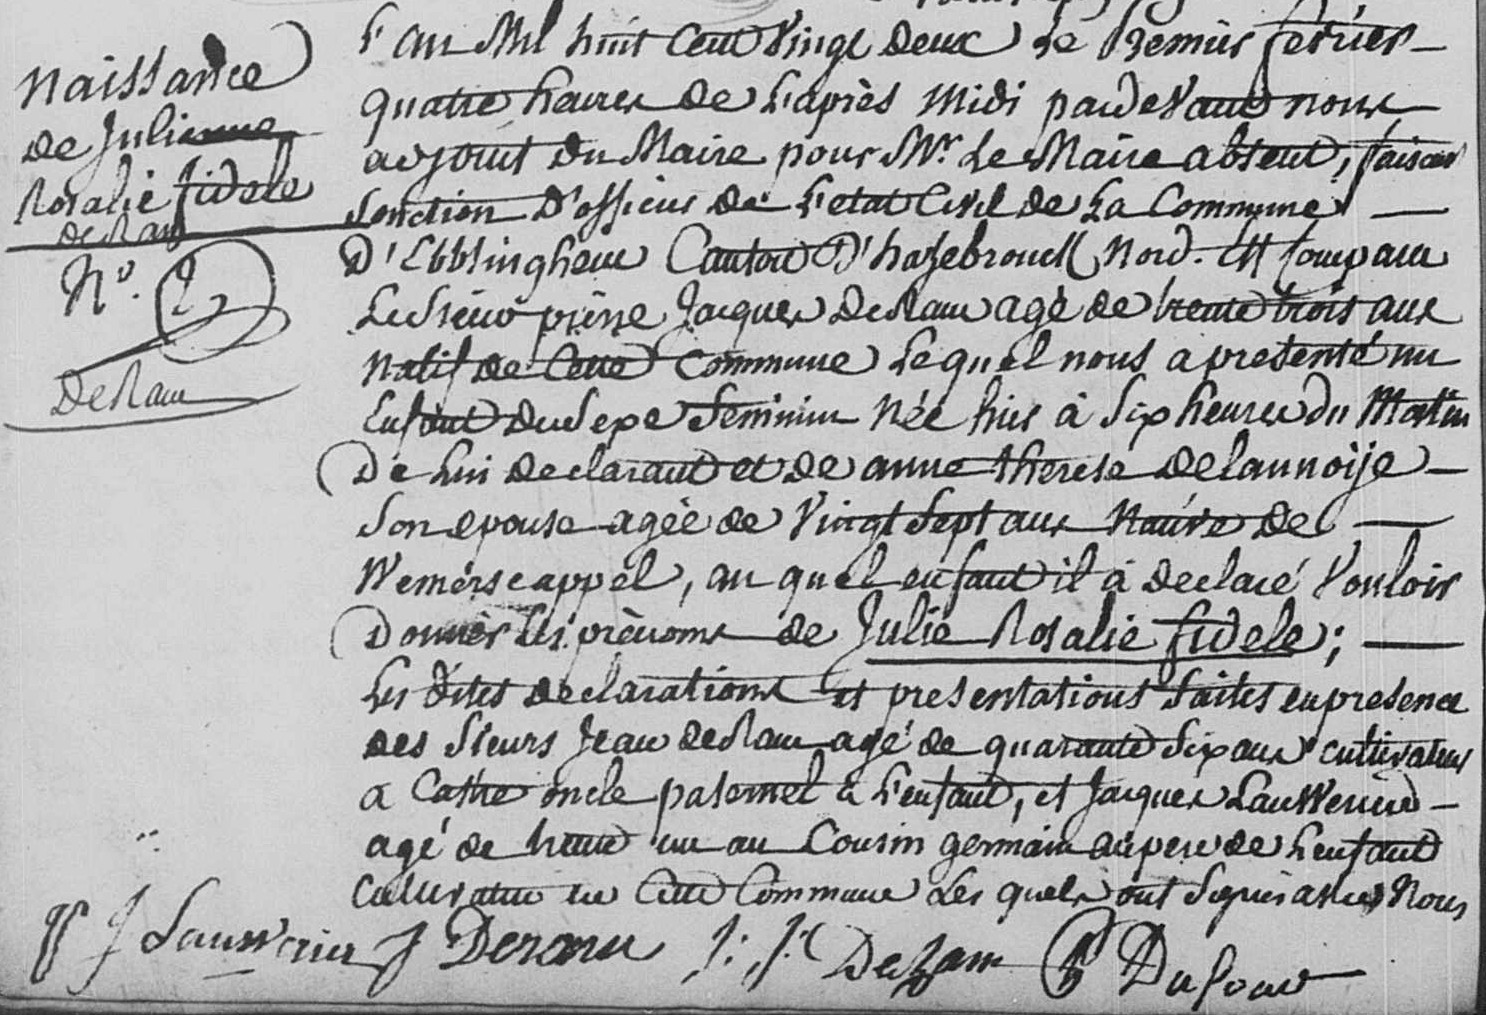 Naissance
de Julienne
Rosalie fidele
deRam
N°. 2
DeRam
L'an Mil huit Cent Vingt deux Le Premier fevrier
quatre heures de L'après Midi pardeVant nous
adjoint du Maire pour Mr. Le Maire absent, faisant
fonction D'officier de L'etat Civil de La Commune
D'Ebblinghem Canton D'hazebrouck Nord. Est Comparu
Le Sieur pierre Jacques DeRam agé de trente trois ans
Natif de Cette Commune Lequel nous a presenté un
Enfant du Sexe feminin Née hier à Six heures du Matin
De Lui declarant et de anne therese Delannoije
Son epouse agée de Vingt Sept ans Native de
Wemerseappel, au quel enfant il à declaré Vouloir
Donner Les prénoms de Julie Rosalie fidele;
Les dites declarations et presentations faites en presence
des Sieurs Jean deRam agé de quarante Six ans cultivateur
a Castre oncle paternel a L'enfant, et Jacques Lauwerier
agé de trente un an Cousin germain du pere de L'enfant
Cultivateur en Cette Commune Les quels ont Signés avec Nous
J Lauwerier J Deram J: J: DeRam Dufour